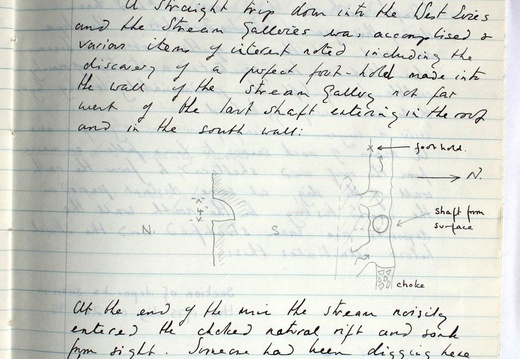 A straight trip down into the West Series
and the Stream Galleries was accomplised &
various items of interest noted including the
discovery of a perfect foot-hold made into
the wall of the Stream Gallery not far
west of the last shaft entering in the roof
and in the south wall:
foothold.
N.
shaft from
surface
4"
N.
S
choke
At the end of the mine the stream noisily
entered the choked natural rift and sank
from sight. Someone had been digging here